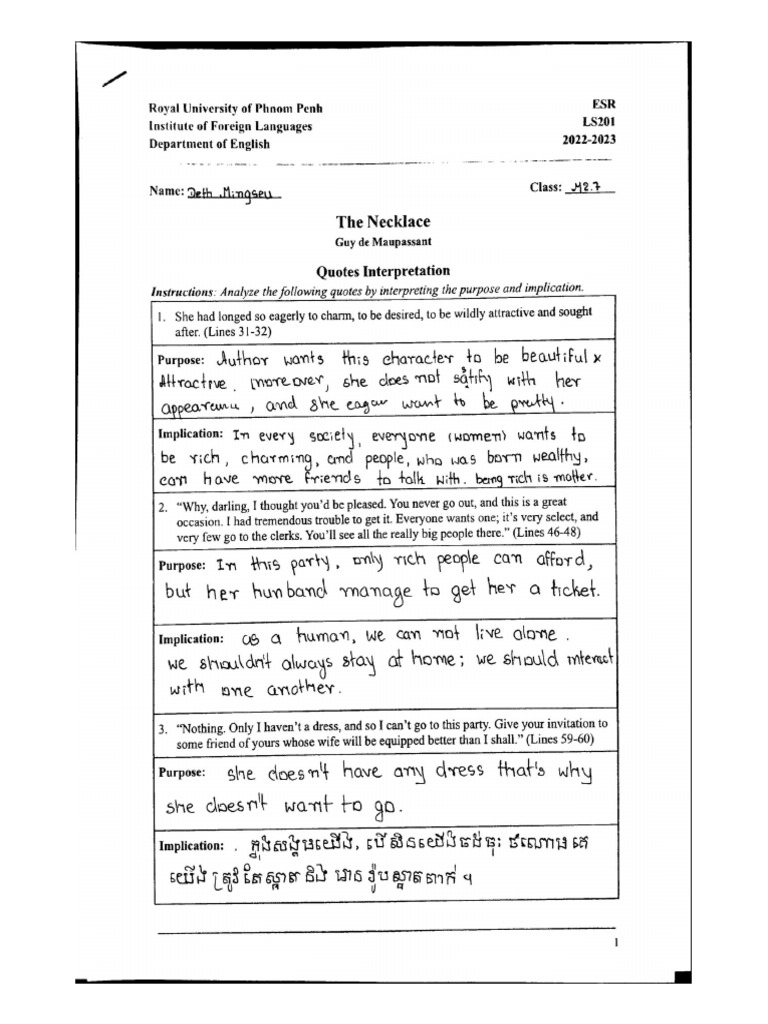 Royal University of Phnom Penh
Institute of Foreign Languages
Department of English
ESR
LS201
2022-2023
Name: Deth Mingseu
Class: M2.7
The Necklace
Guy de Maupassant
Quotes Interpretation
Instructions: Analyze the following quotes by interpreting the purpose and implication.
1. She had longed so eagerly to charm, to be desired, to be wildly attractive and sought
after. (Lines 31-32)
Purpose: Author wants this character to be beautiful x
Attractive. moreover, she does not satify with her
appearanu, and she eagar want to be pretty.
Implication: In every society, everyone (women) wants to
be rich, charming, and people, who was born wealthy,
can have more friends to talk with. being rich is matter.
2. “Why, darling, I thought you’d be pleased. You never go out, and this is a great
occasion. I had tremendous trouble to get it. Everyone wants one; it’s very select, and
very few go to the clerks. You’ll see all the really big people there.” (Lines 46-48)
Purpose: In this party, only rich people can afford,
but her hunband manage to get her a ticket.
Implication: as a human, we can not live alone.
we shouldn't always stay at home; we should interact
with one another.
3. “Nothing. Only I haven’t a dress, and so I can’t go to this party. Give your invitation to
some friend of yours whose wife will be equipped better than I shall.” (Lines 59-60)
Purpose: she doesn't have any dress that's why
she doesn't want to go.
Implication: . ក្នុងសង្គមយើង, បើសិនយើងចង់ចុះ ឥណោមគេ
យើង ត្រូវតែស្អាត និង មាន រ៉ូបស្អាតពាក់ ។
1